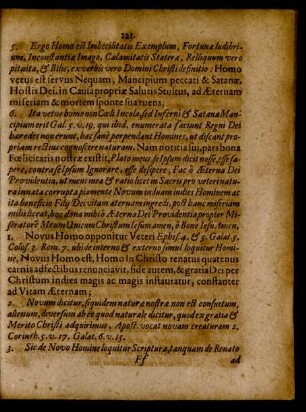 223.
5. Ergo Homo est Imbecilitatis Exemplum, Fortunæ ludibri-
um, Inconstantiæ Imago, Calamitatis Statera, Reliquum vero
pituita, & Bilis, ex verbis vero Domini Christi definitio: Homo
vetus est servus Nequam, Mancipium peccati & Satanæ,
Hostis Dei, in Causa propriæ Salutis Stultus, ad Æternam
miseriam & mortem sponte sua ruens;
6. Ita vetus homo non Cœli Incola, sed Inferni & Satanæ Man-
cipium erit Gal. 5. v. 19. qui ibid. enumerata faciunt Regni Dei
hæredes non erunt, hac sane perpendant Homines, ut discant pro-
priam rectius cognoscere naturam. Nam notitia sui, pars bona
Fœlicitatis nostræ existit, Plato meus se ipsum dicit nosse, esse sa-
pere, contra se ipsum Ignorare, esse desipere, Fac ô Æterna Dei
Providentia, ut mens mea & ratio licet in Sacris pro veteri natu-
ra innata corrupta, piamente Novum in suum indies Hominem ac
ita beneficio Filij Dei vitam æternam ingredi, post hanc miseriam
mihi liceat, hoc dona mihi ô Æterna Dei Providentia propter Mi-
seratorē Meum Unicum Christum Iesum amen, ô Bone Iesu Amen.
1. Novus Homo opponitur Veteri Ephes. 4. & 5. Galat. 5.
Colos. 3. Rom. 7. ubi de interno & externo simul loquitur Homi-
ne, Novus Homo est, Homo In Christo renatus quatenus
carnis adfectibus renunciavit, fide autem, & gratia Dei per
Christum indies magis ac magis instauratur, constanter
ad Vitam Æternam;
2. Novum dicitur, siquidem naturæ nostræ non est consuetum,
alienum, diversum ab eo quod naturale dicitur, quod ex gratia &
Merito Christi adquirimus, Apost. vocat novam creaturam 2.
Corinth. 5. v. 17. Galat. 6. v. 15.
3. Sic de Novo Homine loquitur Scriptura, tanquam de Renato
Ff
ad